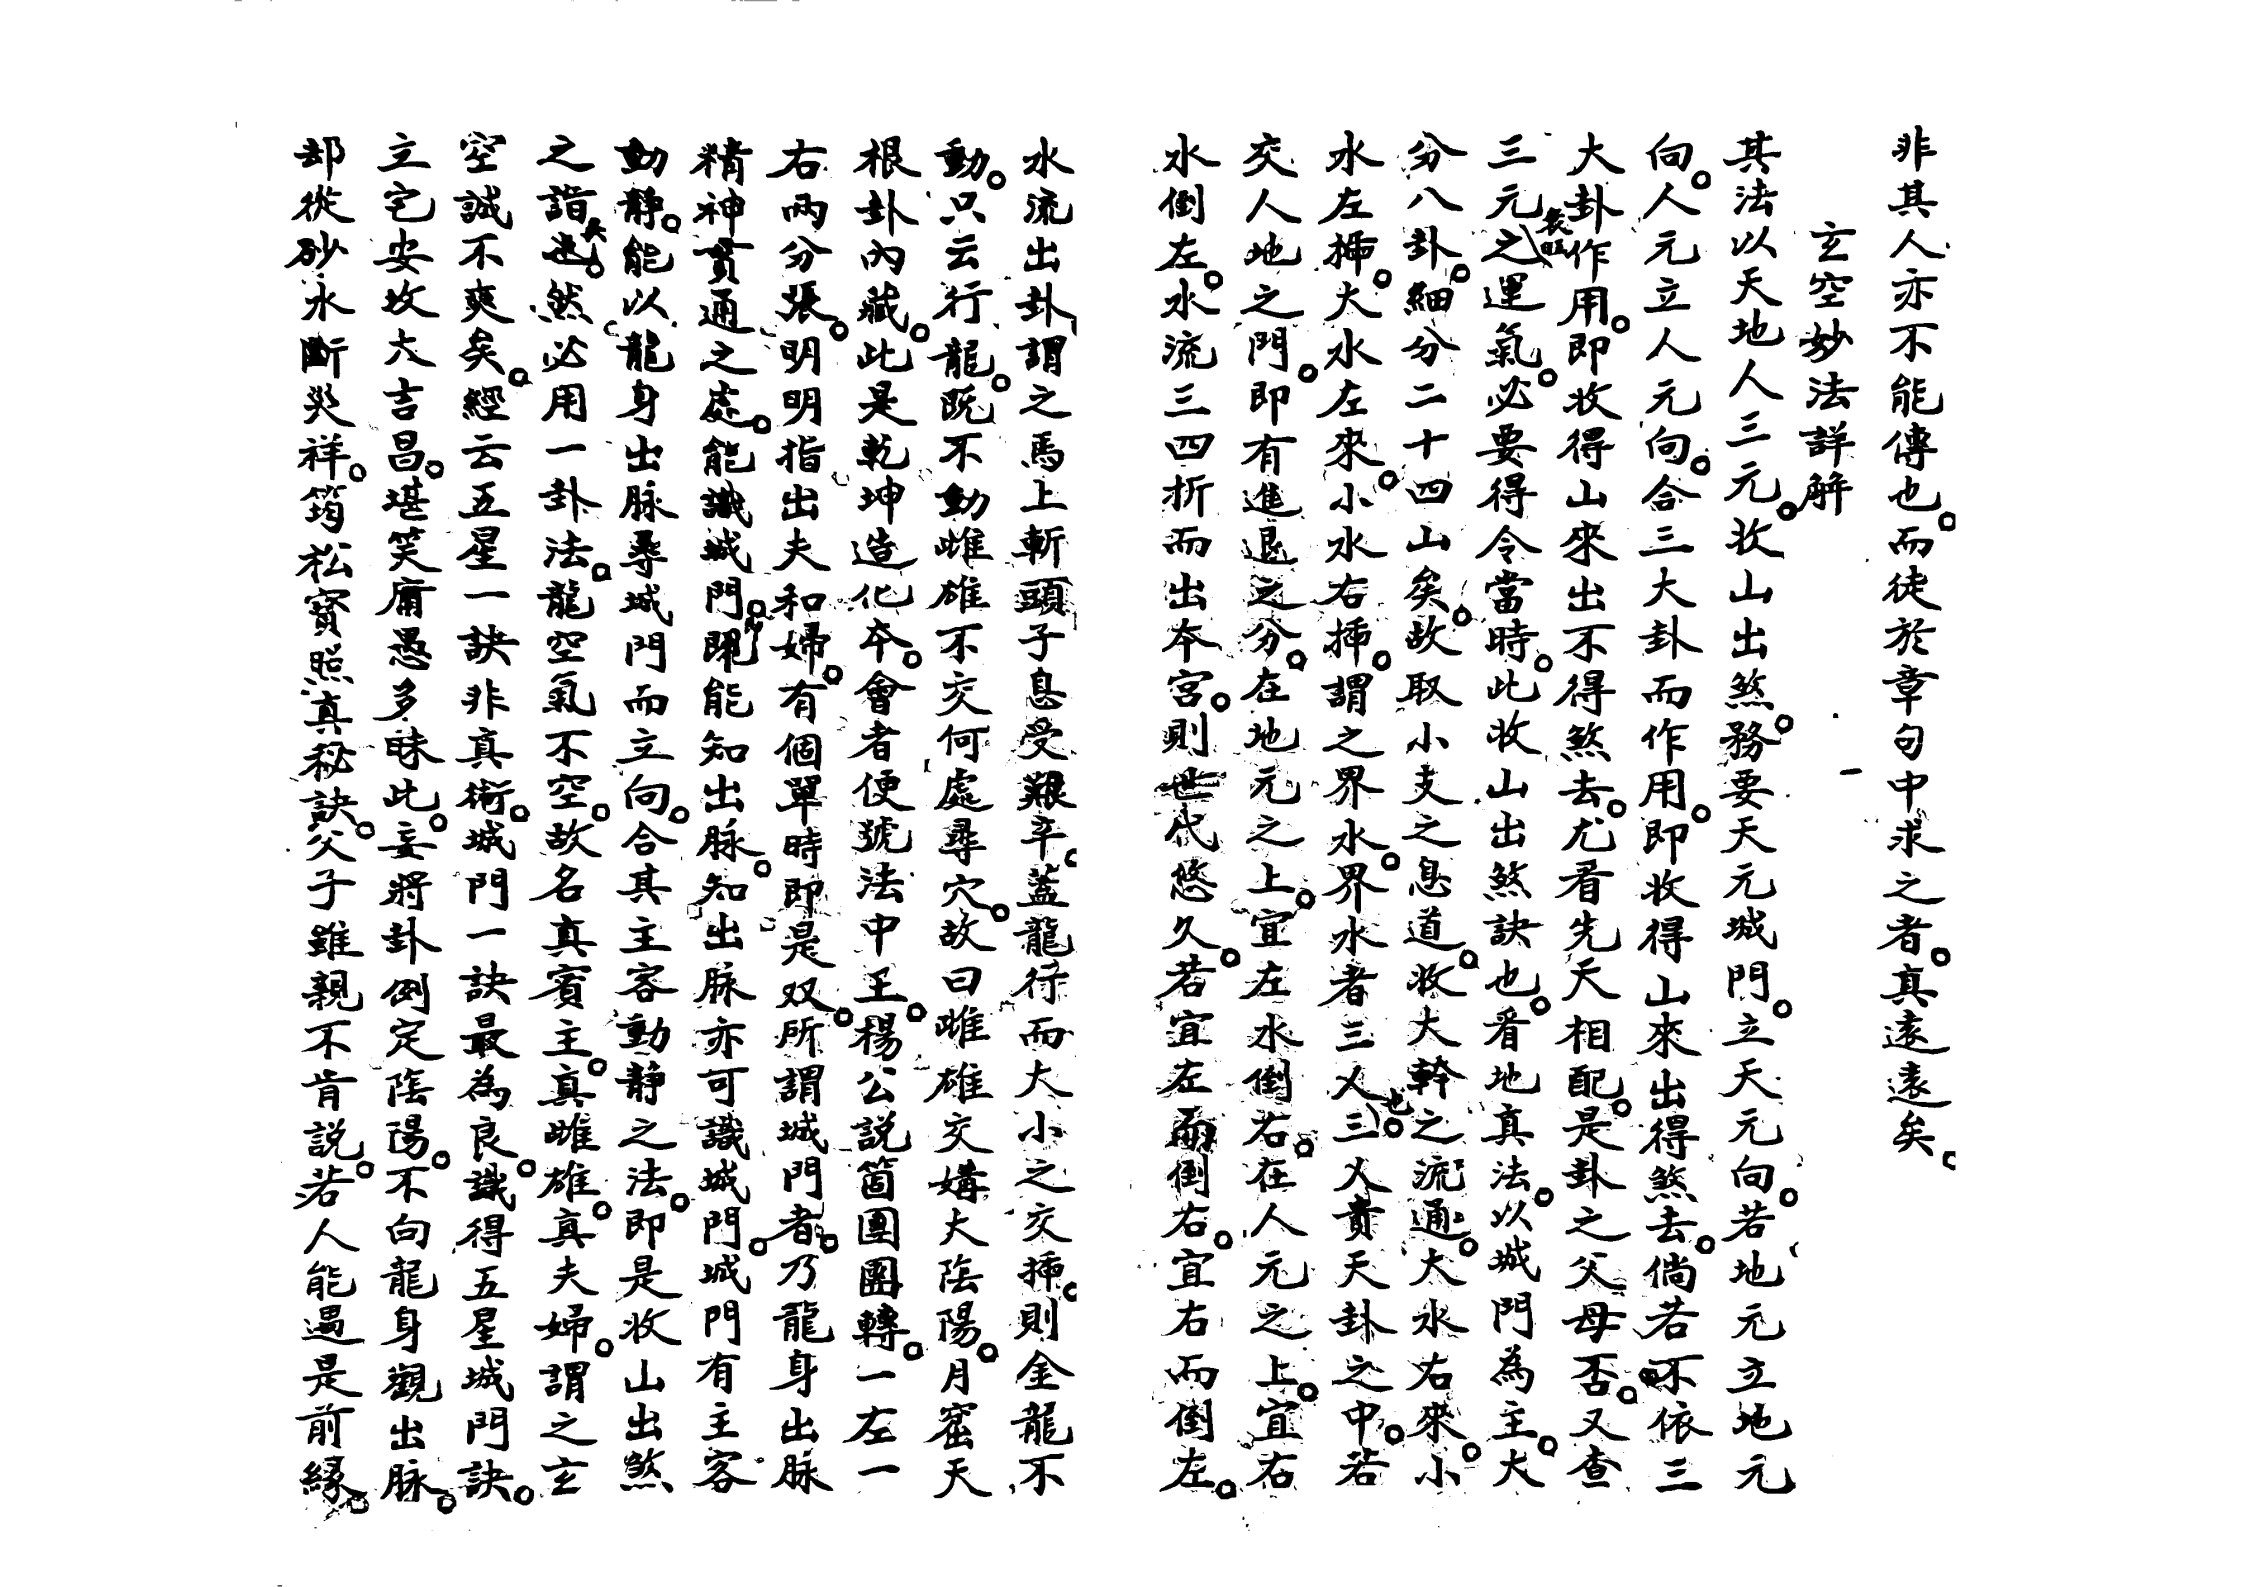 非其人亦不能傳也。而徒於章句中求之者。真遠遠矣。
玄空妙法詳解
其法以天地人三元。收山出煞。務要天元城門。立天元向。若地元立地元
向。人元立人元向。合三大卦而作用。即收得山來出得煞去。倘若不依三
大卦作用。即收得山來出不得煞去。尤看先天相配。是卦之父母否。又查
三元之衰旺運氣。必要得令當時。此收山出煞訣也。看地真法。以城門為主。大
分八卦。細分二十四山矣。故取小支之息道。收大幹之流通。大水右來。小
水左插。大水左來。小水右插。謂之界水。界水者三乂也。三乂貴天卦之中。若
交人地之門。即有進退之分。在地元之上。宜左水倒右。在人元之上。宜右
水倒左。水流三四折而出本宮。則世代悠久。若宜左而倒右。宜右而倒左。
水流出卦。謂之馬上斬頭。子息受艱辛。蓋龍行而大小之交插。則金龍不
動。只云行龍。既不動雌雄不交何處尋穴。故曰雌雄交媾大陰陽。月窟天
根卦內藏。此是乾坤造化本。會者便號法中王。楊公説箇團團轉。一左一
右兩分張。明明指出夫和婦。有個單時即是双。所謂城門者。乃龍身出脉
精神貫通之處。能識城門。即能知出脉。知出脉亦可識城門。城門有主客
動靜。能以龍身出脉尋城門而立向。合其主客動静之法。即是收山出煞
之諳矣。然必用一卦法。龍空氣不空。故名真賓主。真雌雄。真夫婦。謂之玄
空誠不爽矣。經云五星一訣非真術。城門一訣最為良。識得五星城門訣。
立宅安坟大吉昌。堪笑庸愚多昧此。妄將卦例定陰陽。不向龍身觀出脉。
却從砂水斷災祥。筠松寳照真秘訣。父子雖親不肯説。若人能遇是前緣。